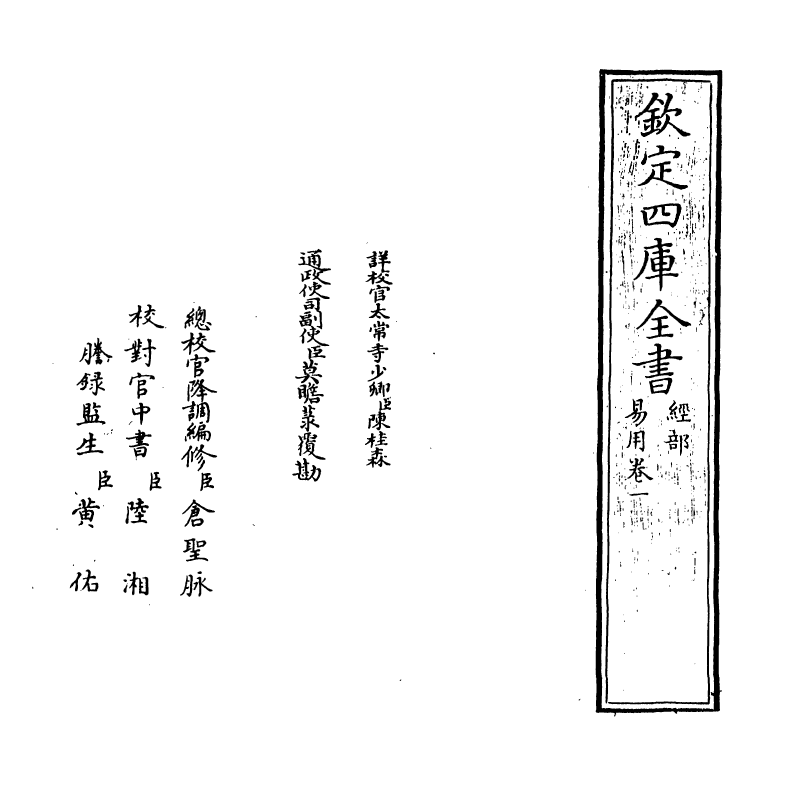 欽定四庫全書
經部
易用卷一
詳校官太常寺少卿臣陳桂森
通政使司副使臣莫瞻菉覆勘
總校官降調編修臣倉聖脉
校對官中書臣陸湘
謄録監生臣黃佑